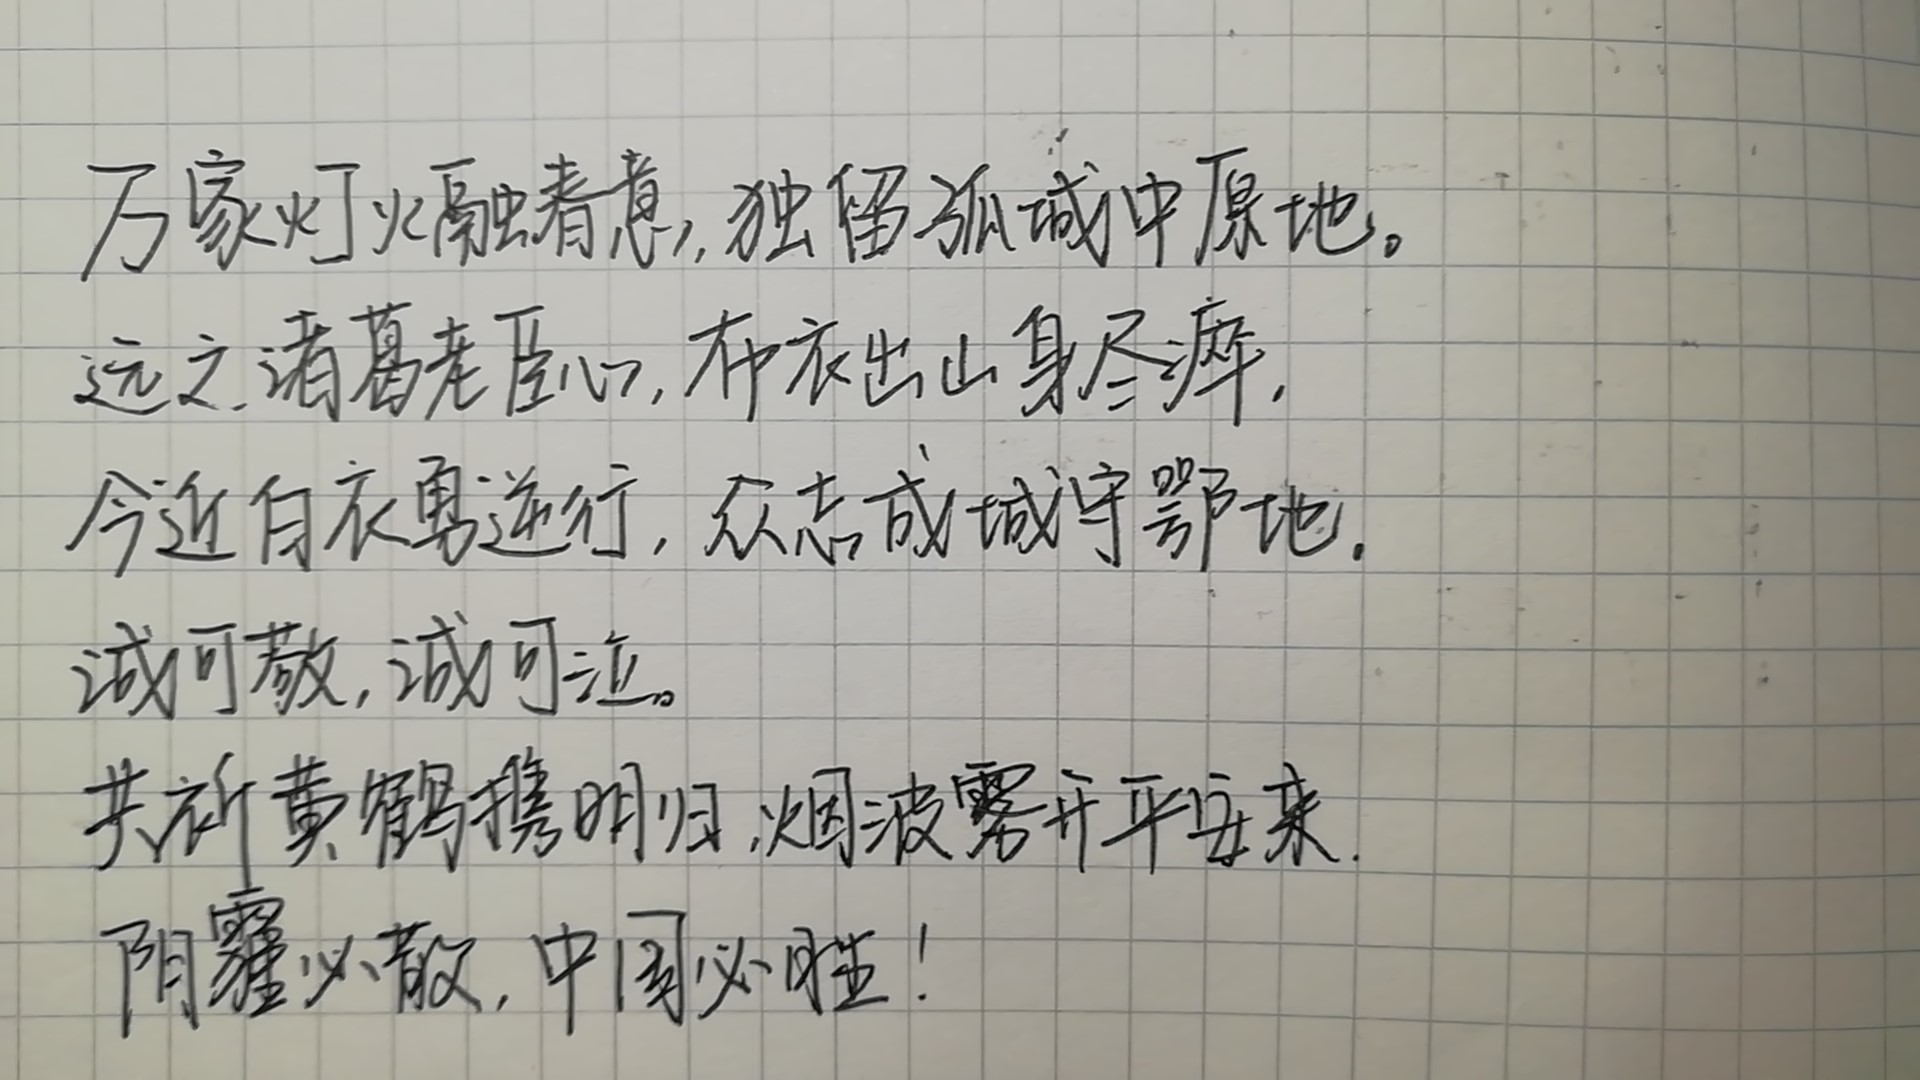 万家灯火融春意，独留孤城中原地。
远之诸葛老臣心，布衣出山身尽瘁，
今近白衣勇逆行，众志成城守鄂地。
诚可敬，诚可泣。
共祈黄鹤携明归，烟波雾开平安来.
阴霾必散，中国必胜！